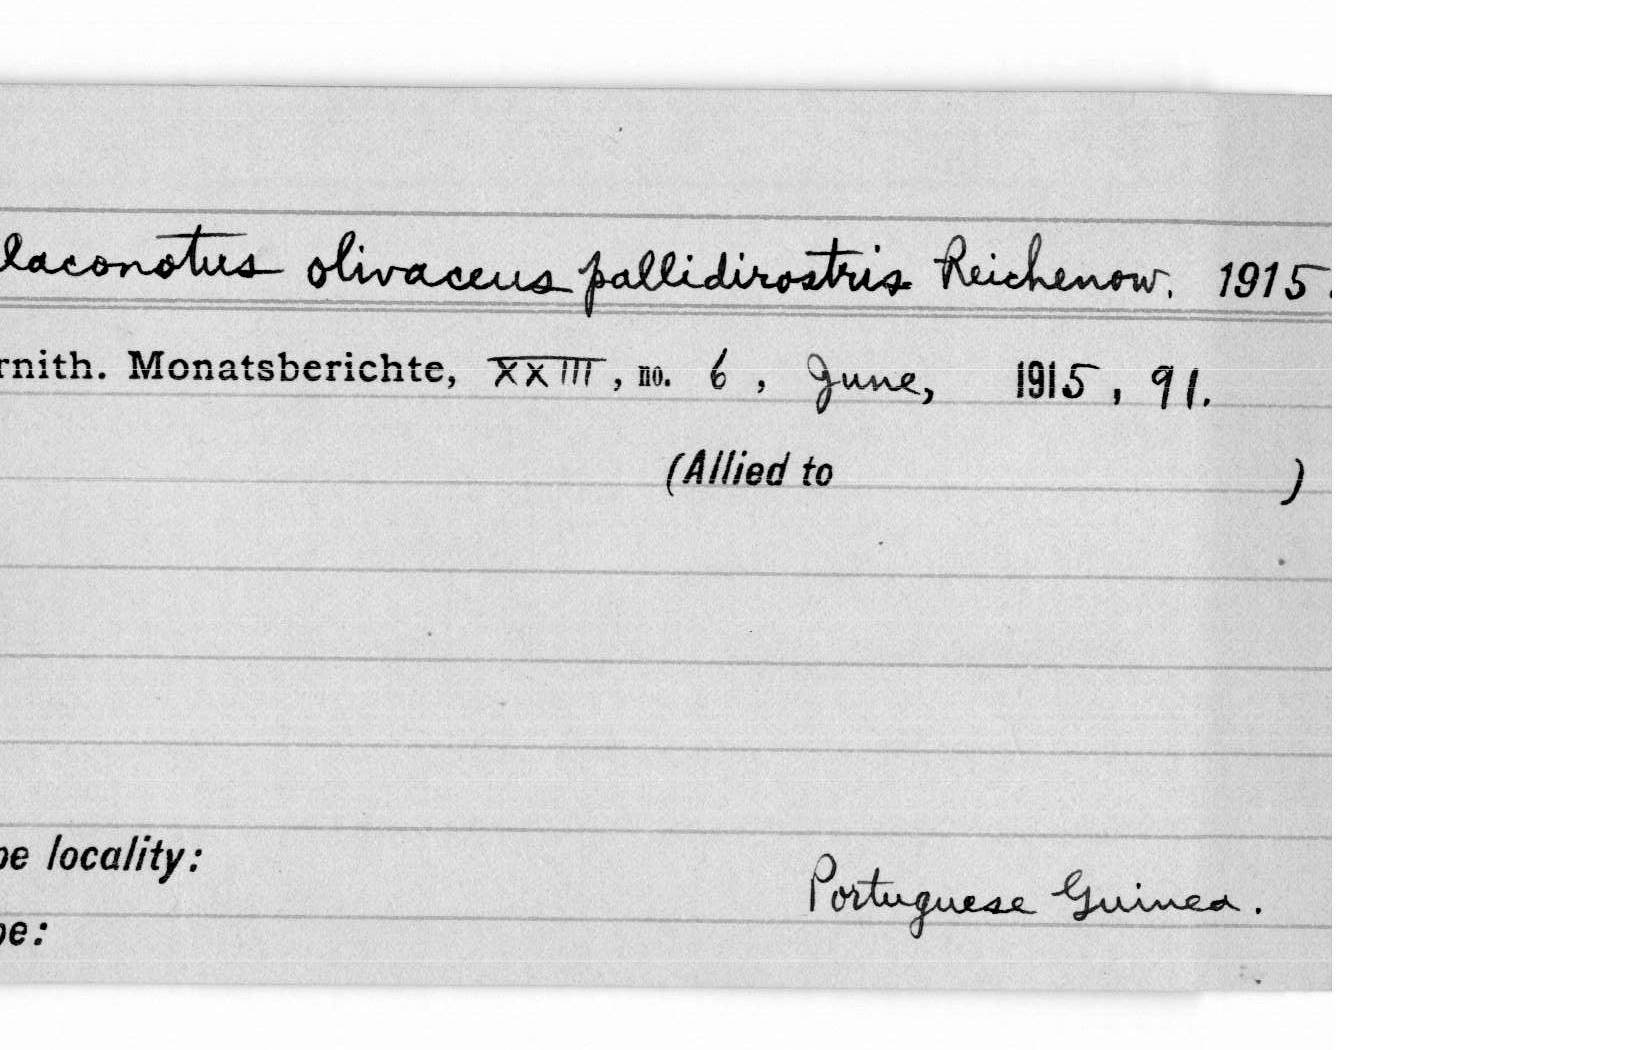 laconotus olivaceus pallidirostris Reichenow. 1915.
rnith. Monatsberichte, XXIII, no. 6, June, 1915, 91.
(Allied to )
pe locality: Portuguese Guinea.
pe: